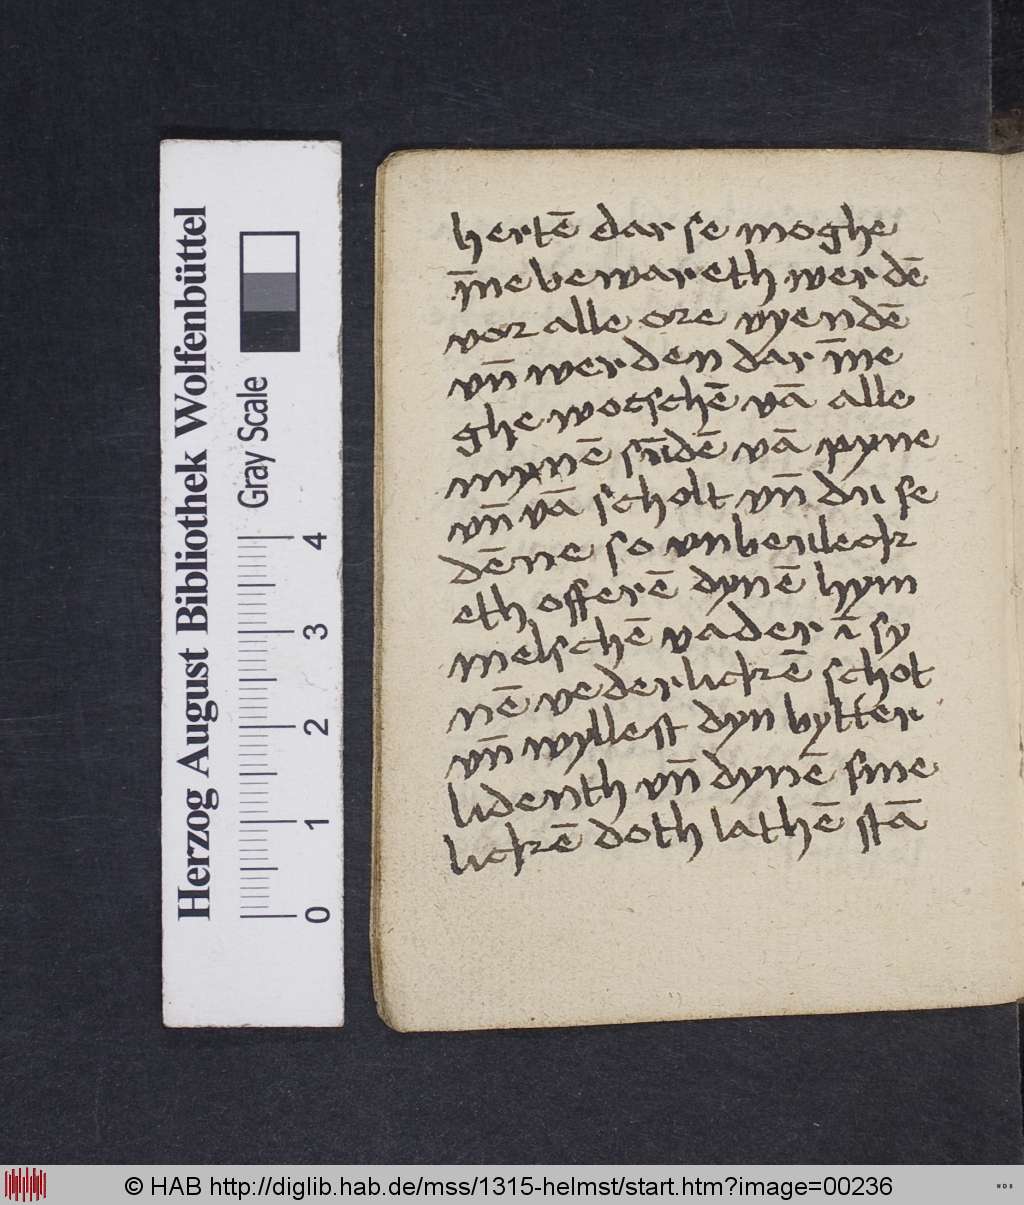 hertē dar se moghe
īne bewareth werdē
vor alle ore vyendē
vn̄ werden dar īne
ghe woeschē vā alle
mynē sūdē vā pyne
vn̄ vā scholt vn̄ du se
dēne so vnbeuleck
eth offerē dynē hym
melschē vader ī sy
nē vederlickē schot
vn̄ wyllest dyn bytter
lidenth vn̄ dynē sme
lickē doth lathē stā
Herzog August Bibliothek Wolfenbüttel
Gray Scale
0 1 2 3 4
© HAB http://diglib.hab.de/mss/1315-helmst/start.htm?image=00236